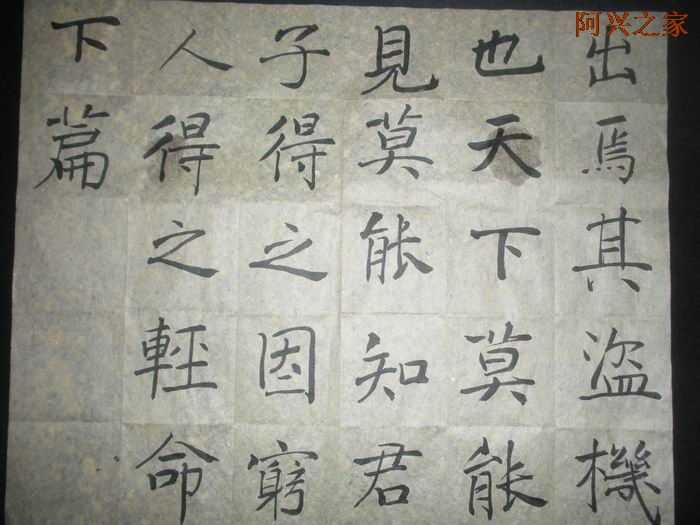 阿兴之家
出焉其盗機
也天下莫能
見莫能知君
子得之因窮
人得之輕命
下篇